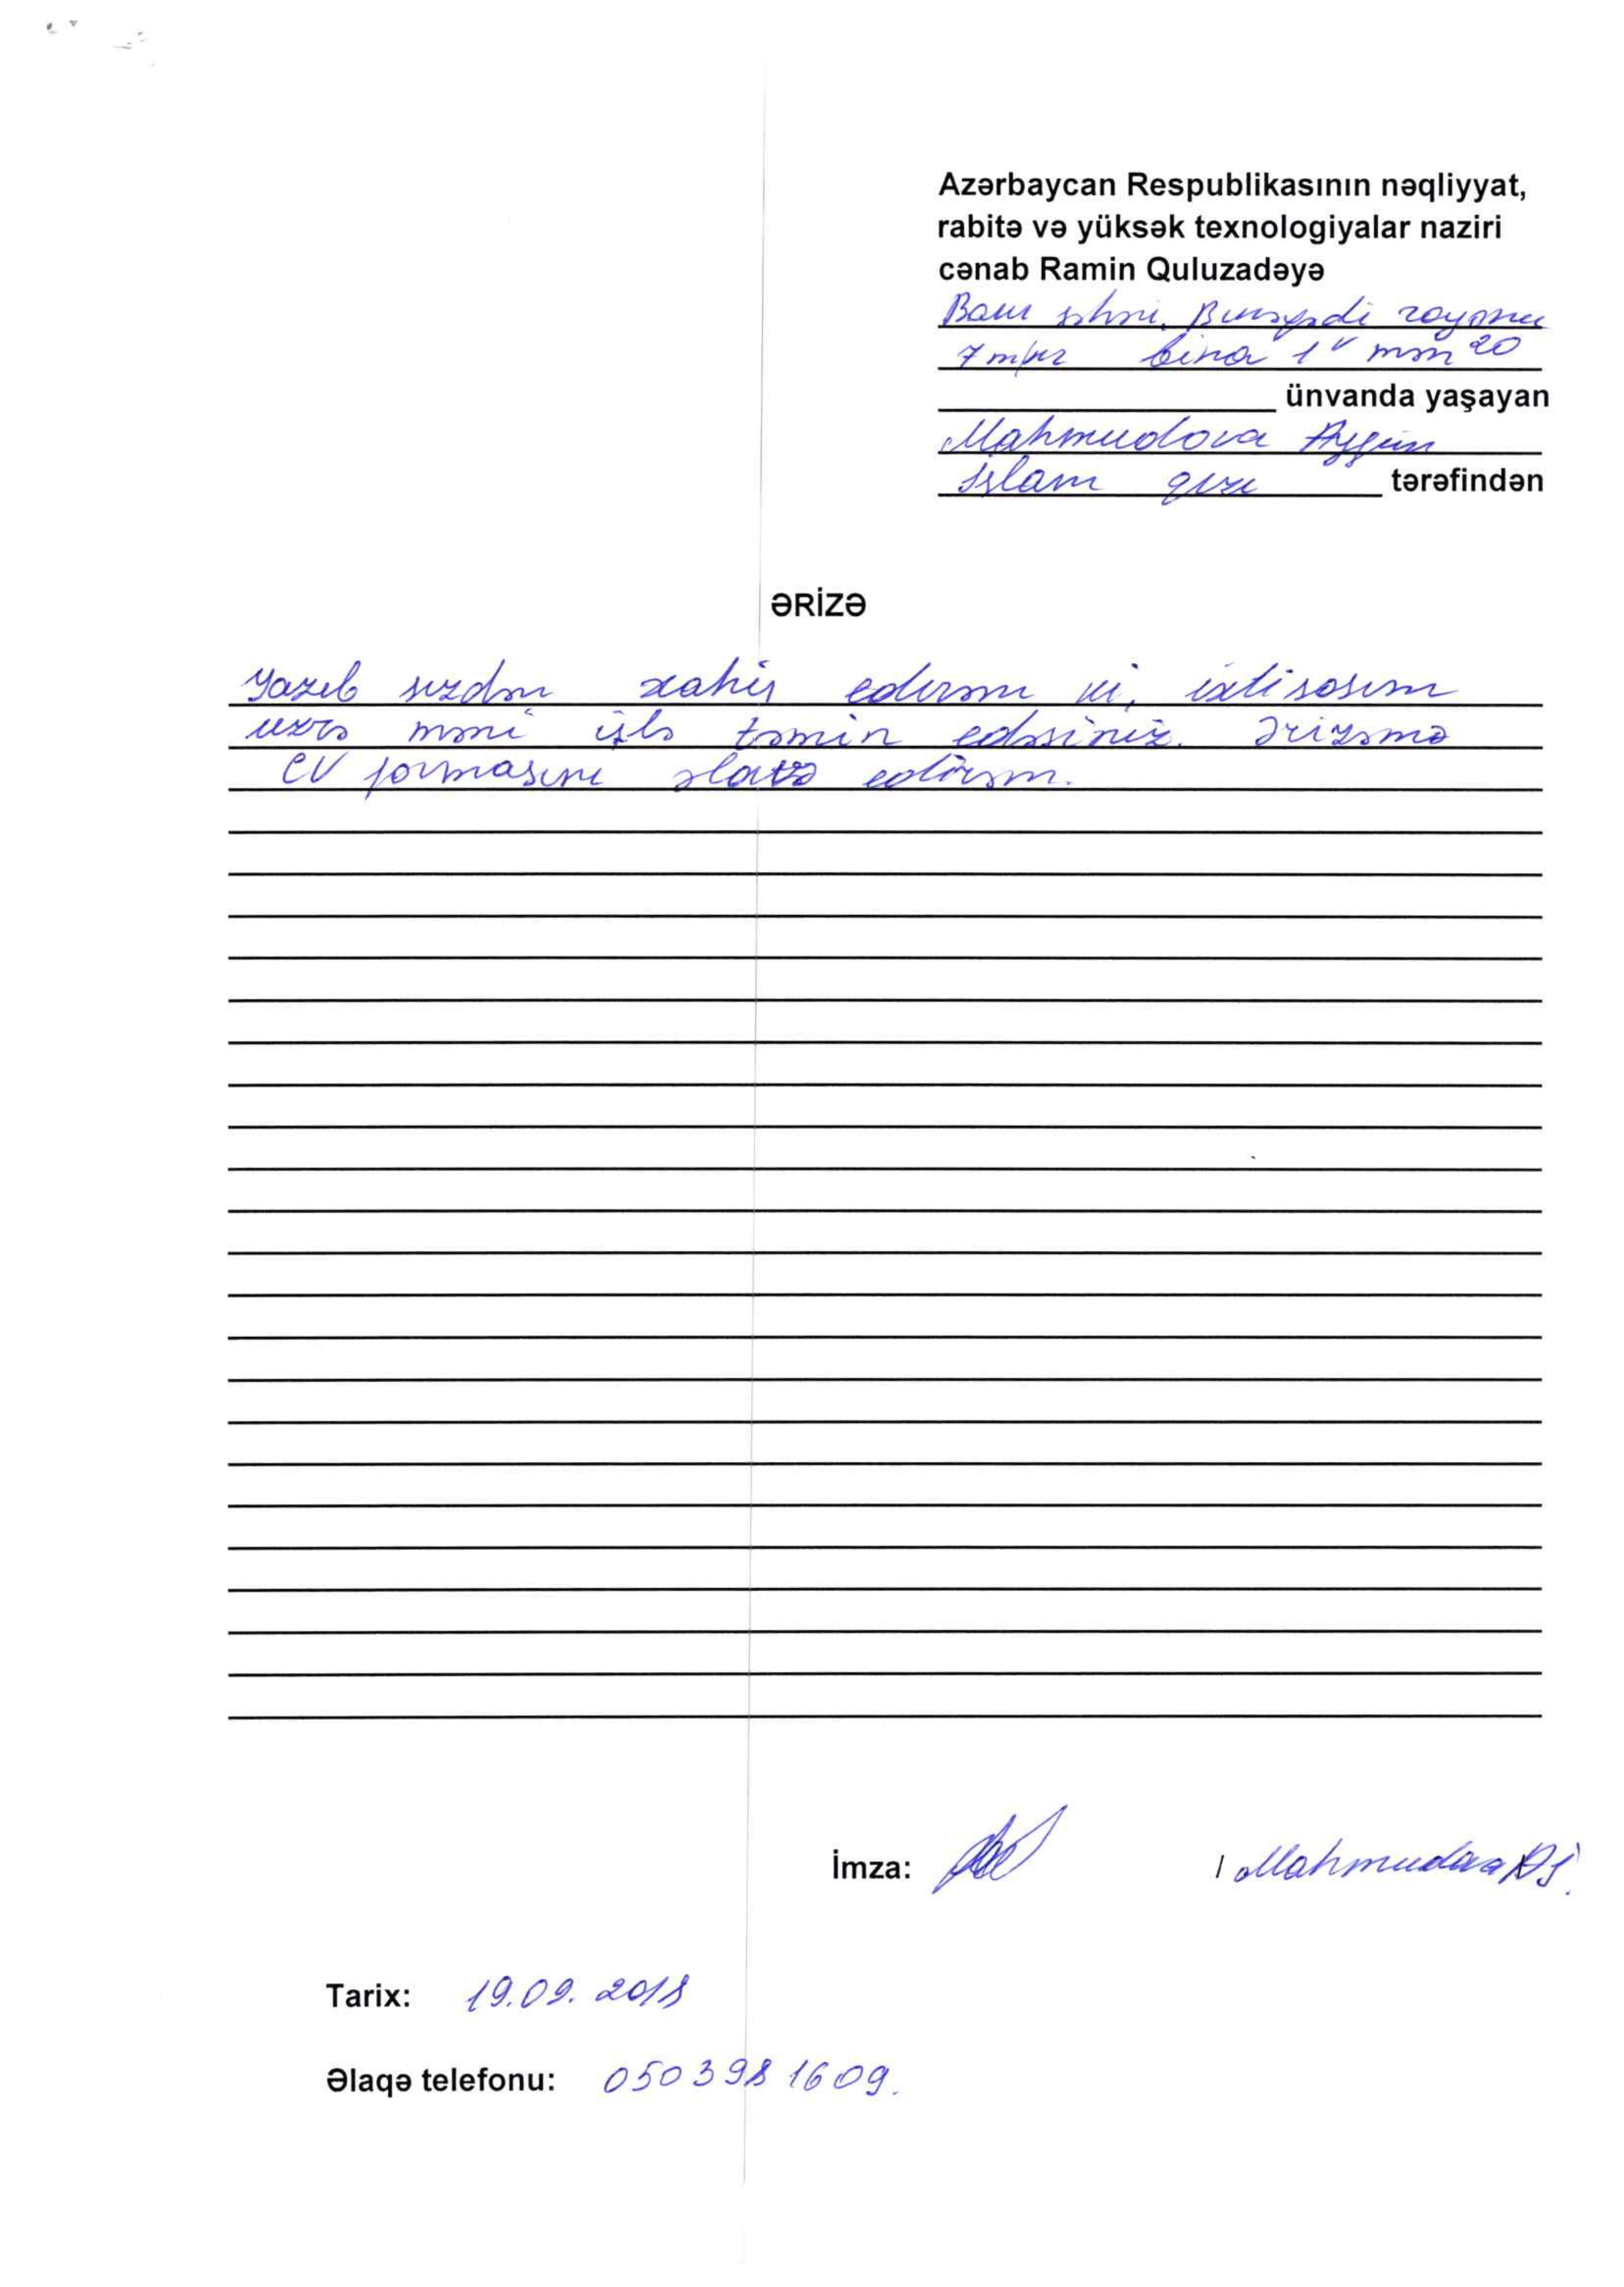 Azərbaycan Respublikasının nəqliyyat,
rabitə və yüksək texnologiyalar naziri
cənab Ramin Quluzadəyə
Bakı şəhəri, Binəqədi rayonu
7 mkr bina 1ᵛ mən 20
ünvanda yaşayan
Mahmudova Aygün
İslam qızı tərəfindən
ƏRİZƏ
Yazıb sizdən xahiş edirəm ki, ixtisasım
üzrə məni işlə təmin edəsiniz. Ərizəmə
CV formasını əlavə edirəm.
İmza: / Mahmudova A.İ.
Tarix: 19.09.2018
Əlaqə telefonu: 050 398 16 09.